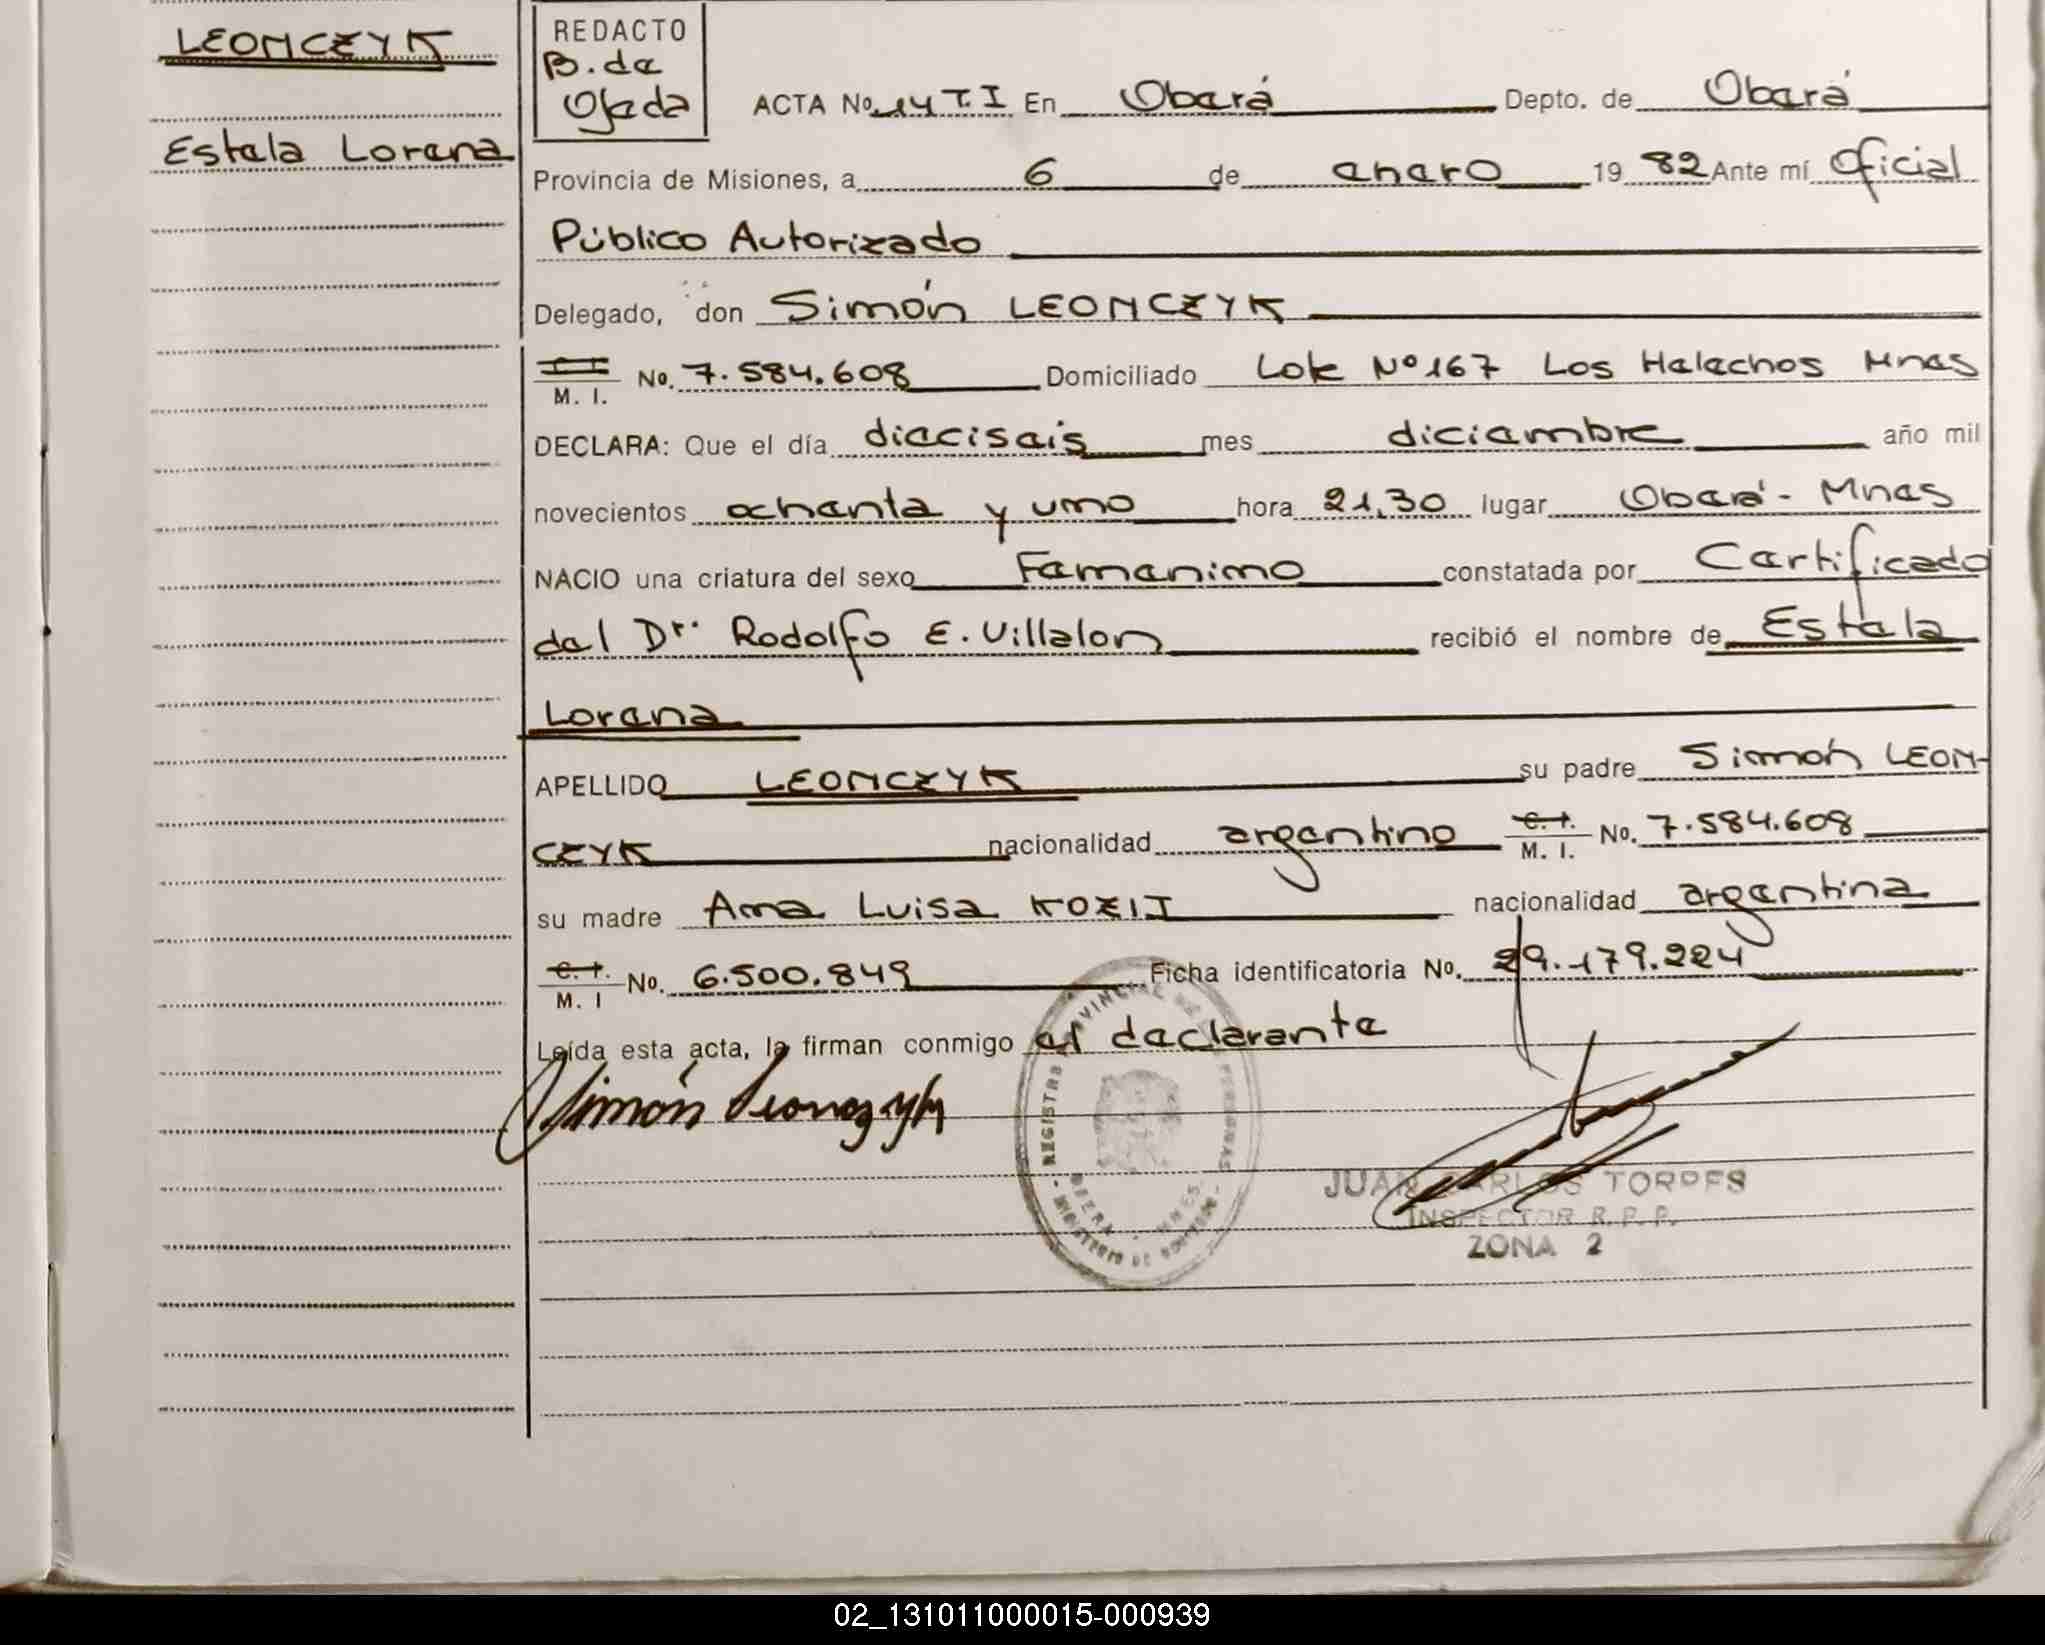 LEONCZYK
Estela Lorena
REDACTO
B. de
Ojeda
ACTA No. 14 T.I En Oberá Depto. de Oberá
Provincia de Misiones, a 6 de enero 19 82 Ante mí Oficial
Público Autorizado
Delegado, don Simón LEONCZYK
C. I. M. I. No. 7.584.608 Domiciliado Lote Nº 167 Los Helechos Mnes
DECLARA: Que el día dieciseis mes diciembre año mil
novecientos ochenta y uno hora 21,30 lugar Oberá - Mnes
NACIO una criatura del sexo Femenino constatada por Certificado
del Dr. Rodolfo E. Villalon recibió el nombre de Estela
Lorena
APELLIDO LEONCZYK su padre Simón LEON-
CZYK nacionalidad argentino C. I. M. I. No. 7.584.608
su madre Ana Luisa KOZIJ nacionalidad argentina
C. I. M. I No. 6.500.849 Ficha identificatoria No. 29.179.224
Leída esta acta, la firman conmigo el declarante
Simón Leonczyk
REGISTRO PROVINCIAL DE PERSONAS
OBERA - MNES
MINISTERIO DE GOBIERNO
JUAN CARLOS TORRES
INSPECTOR R. P. P.
ZONA 2
02_131011000015-000939